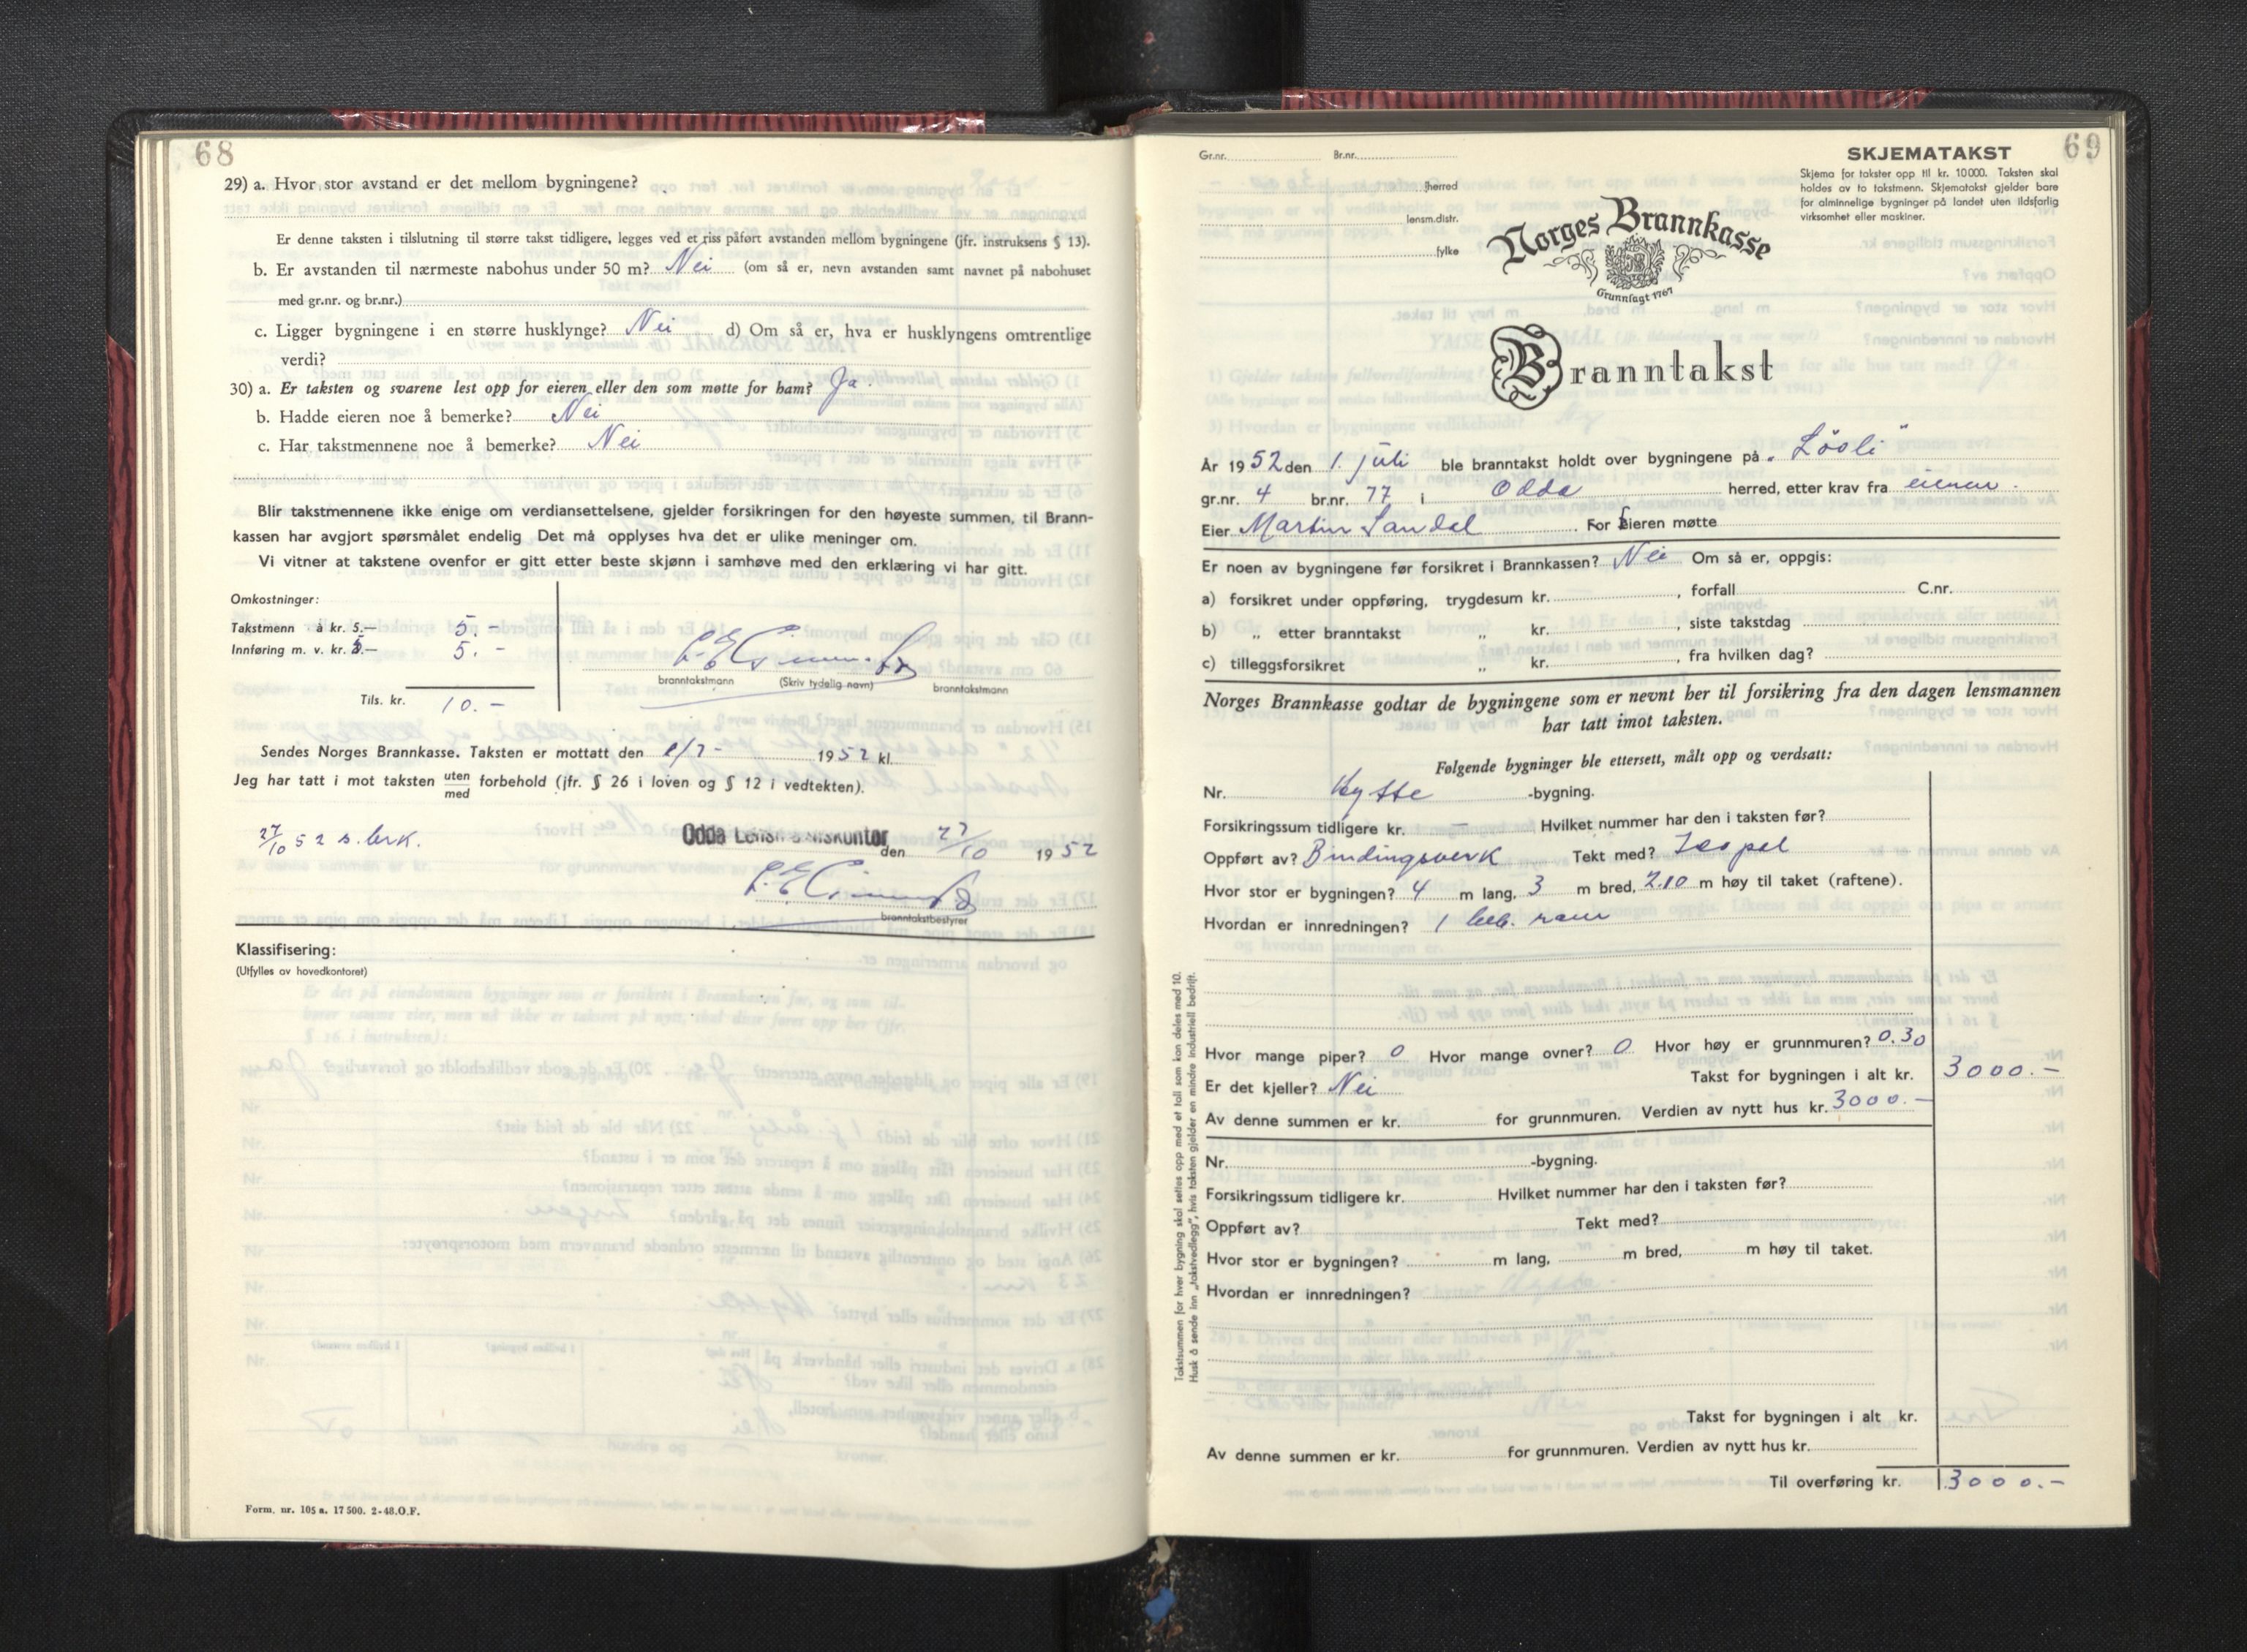 68
29) a. Hvor stor avstand er det mellom bygningene?
Er denne taksten i tilslutning til større takst tidligere, legges ved et riss påført avstanden mellom bygningene (jfr. instruksens § 13).
b. Er avstanden til nærmeste nabohus under 50 m? Nei (om så er, nevn avstanden samt navnet på nabohuset
med gr.nr. og br.nr.)
c. Ligger bygningene i en større husklynge? Nei d) Om så er, hva er husklyngens omtrentlige
verdi?
30) a. Er taksten og svarene lest opp for eieren eller den som møtte for ham? Ja.
b. Hadde eieren noe å bemerke? Nei
c. Har takstmennene noe å bemerke? Nei
Blir takstmennene ikke enige om verdiansettelsene, gjelder forsikringen for den høyeste summen, til Brann-
kassen har avgjort spørsmålet endelig. Det må opplyses hva det er ulike meninger om.
Vi vitner at takstene ovenfor er gitt etter beste skjønn i samhøve med den erklæring vi har gitt.
Omkostninger:
Takstmenn à kr. 5.— 5.-
Innføring m. v. kr. 5.— 5.-
branntakstmann (Skriv tydelig navn) branntakstmann
Tils. kr. 10.-
Sendes Norges Brannkasse. Taksten er mottatt den 1952 kl.
Jeg har tatt i mot taksten uten forbehold (jfr. § 26 i loven og § 12 i vedtekten).
med
27/10 52 s. brk.
Odda Lensmannskontor den 27/10 1952
branntakstbestyrer
Klassifisering:
(Utfylles av hovedkontoret)
Form. nr. 105 a. 17 500. 2-48. O.F.
69
Gr.nr. Br.nr.
herred
lensm.distr.
fylke
SKJEMATAKST
Skjema for takster opp til kr. 10000. Taksten skal
holdes av to takstmenn. Skjematakst gjelder bare
for alminnelige bygninger på landet uten ildsfarlig
virksomhet eller maskiner.
Norges Brannkasse
Grunnlagt 1767
Branntakst
År 1952 den 1. juli ble branntakst holdt over bygningene på "Lösli"
gr.nr. 4 br.nr. 77 i Odda herred, etter krav fra eieren.
Eier Martin Sandal. For Eieren møtte
Er noen av bygningene før forsikret i Brannkassen? Nei Om så er, oppgis:
a) forsikret under oppføring, trygdesum kr. , forfall C.nr.
b) „ etter branntakst „ kr. , siste takstdag
c) tilleggsforsikret „ kr. , fra hvilken dag?
Norges Brannkasse godtar de bygningene som er nevnt her til forsikring fra den dagen lensmannen
har tatt imot taksten.
Følgende bygninger ble ettersett, målt opp og verdsatt:
Nr. Hytte -bygning.
Forsikringssum tidligere kr. — Hvilket nummer har den i taksten før?
Oppført av? Bindingsverk Tekt med? Isopal
Hvor stor er bygningen? 4 m lang, 3 m bred, 2.10 m høy til taket (raftene).
Hvordan er innredningen? 1 beb. rom
Hvor mange piper? 0 Hvor mange ovner? 0 Hvor høy er grunnmuren? 0.30
Er det kjeller? Nei Takst for bygningen i alt kr. 3000.-
Av denne summen er kr. for grunnmuren. Verdien av nytt hus kr. 3000.-
Nr. -bygning.
Forsikringssum tidligere kr. Hvilket nummer har den i taksten før?
Oppført av? Tekt med?
Hvor stor er bygningen? m lang, m bred, m høy til taket.
Hvordan er innredningen?
Takst for bygningen i alt kr.
Av denne summen er kr. for grunnmuren. Verdien av nytt hus kr.
Til overføring kr. 3000.-
Takstsummen for hver bygning skal settes opp med et tall som kan deles med 10.
Husk å sende inn „takstvedlegg", hvis taksten gjelder en mindre industriell bedrift.